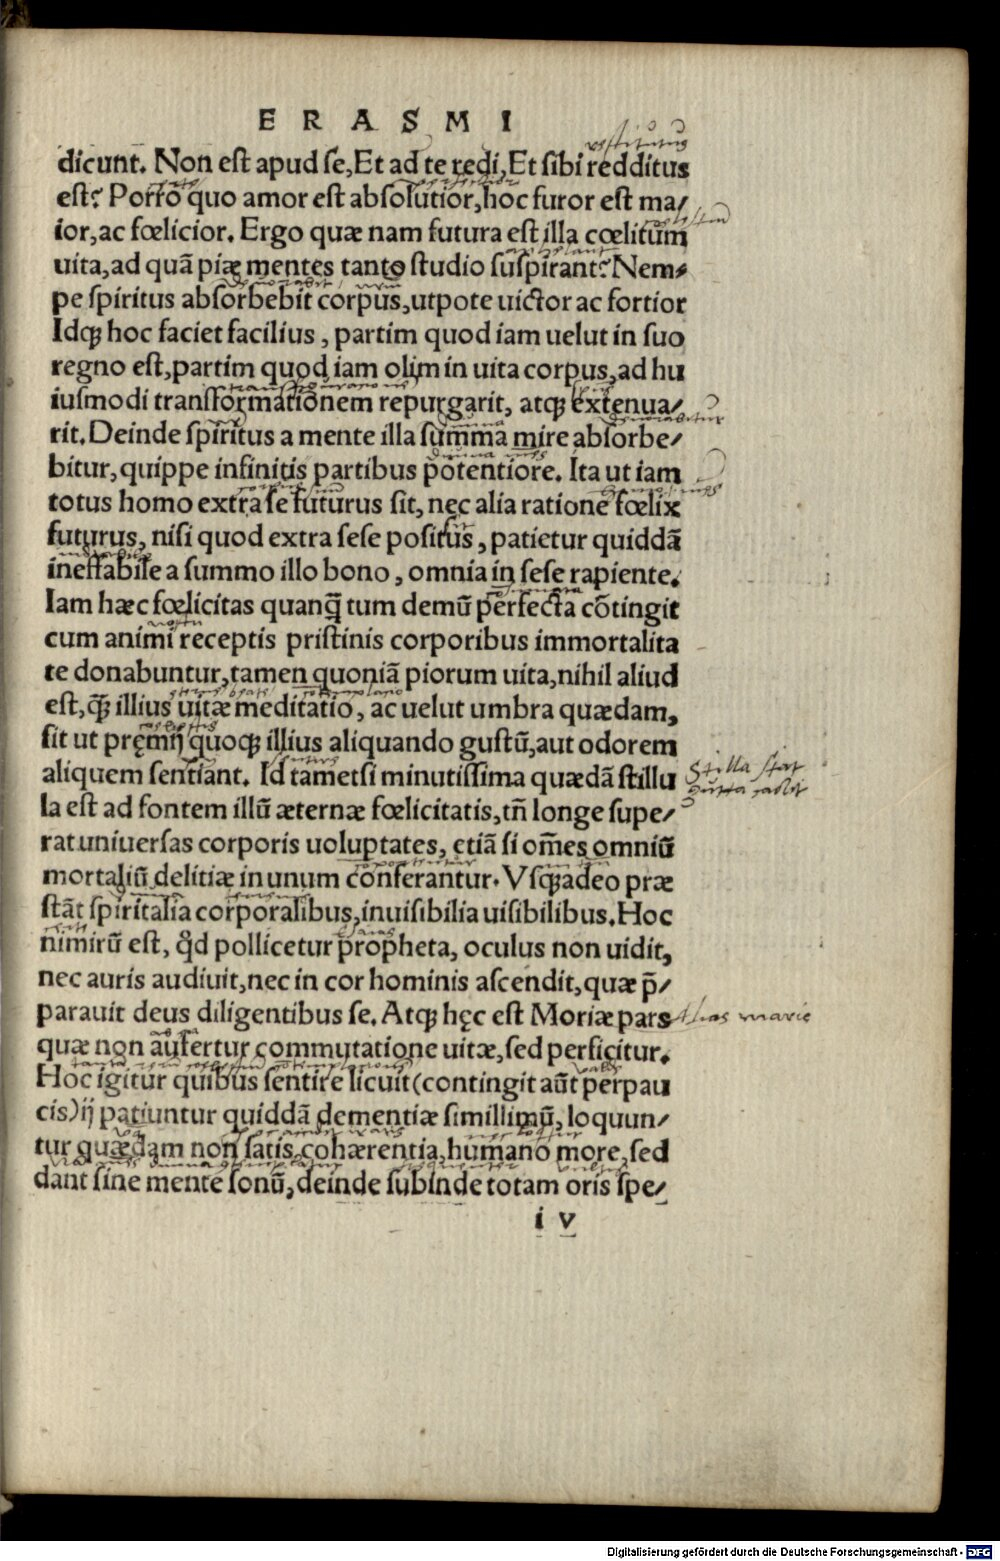 ERASMI
dicunt. Non est apud se, Et ad te redi, Et sibi redditus
est? Porro quo amor est absolutior, hoc furor est ma/
ior, ac fœlicior. Ergo quæ nam futura est illa cœlitum
uita, ad quã piæ mentes tanto studio suspirant? Nem⸗
pe spiritus absorbebit corpus, utpote uictor ac fortior
Idqꝫ hoc faciet facilius, partim quod iam uelut in suo
regno est, partim quod iam olim in uita corpus, ad hu
iusmodi transformationem repurgarit, atqꝫ extenua/
rit. Deinde spiritus a mente illa summa mire absorbe/
bitur, quippe infinitis partibus potentiore. Ita ut iam
totus homo extra se futurus sit, nec alia ratione fœlix
futurus, nisi quod extra sese positus, patietur quiddã
ineffabile a summo illo bono, omnia in sese rapiente.
Iam hæc fœlicitas quanq̃ tum demũ perfecta cõtingit
cum animi receptis pristinis corporibus immortalita
te donabuntur, tamen quoniã piorum uita, nihil aliud
est, q̃ illius uitæ meditatio, ac uelut umbra quædam,
fit ut pręmij quoqꝫ illius aliquando gustũ, aut odorem
aliquem sentiant. Id tametsi minutissima quædã stillu
Stilla stat
gutta cadit
la est ad fontem illũ æternæ fœlicitatis, tñ longe supe/
rat uniuersas corporis uoluptates, etiã si om̃es omniũ
mortaliũ delitiæ in unum conferantur. Vsqꝫadeo præ
stãt spiritalia corporalibus, inuisibilia uisibilibus. Hoc
nimirũ est, qd̃ pollicetur propheta, oculus non uidit,
nec auris audiuit, nec in cor hominis ascendit, quæ p̃/
parauit deus diligentibus se. Atqꝫ hęc est Moriæ pars
alias marie
quæ non aufertur commutatione uitæ, sed perficitur.
Hoc igitur quibus sentire licuit (contingit aũt perpau
cis) ij patiuntur quiddã dementiæ simillimũ, loquun/
tur quædam non satis cohærentia, humano more, sed
dant sine mente sonũ, deinde subinde totam oris spe/
i v
Digitalisierung gefördert durch die Deutsche Forschungsgemeinschaft - DFG